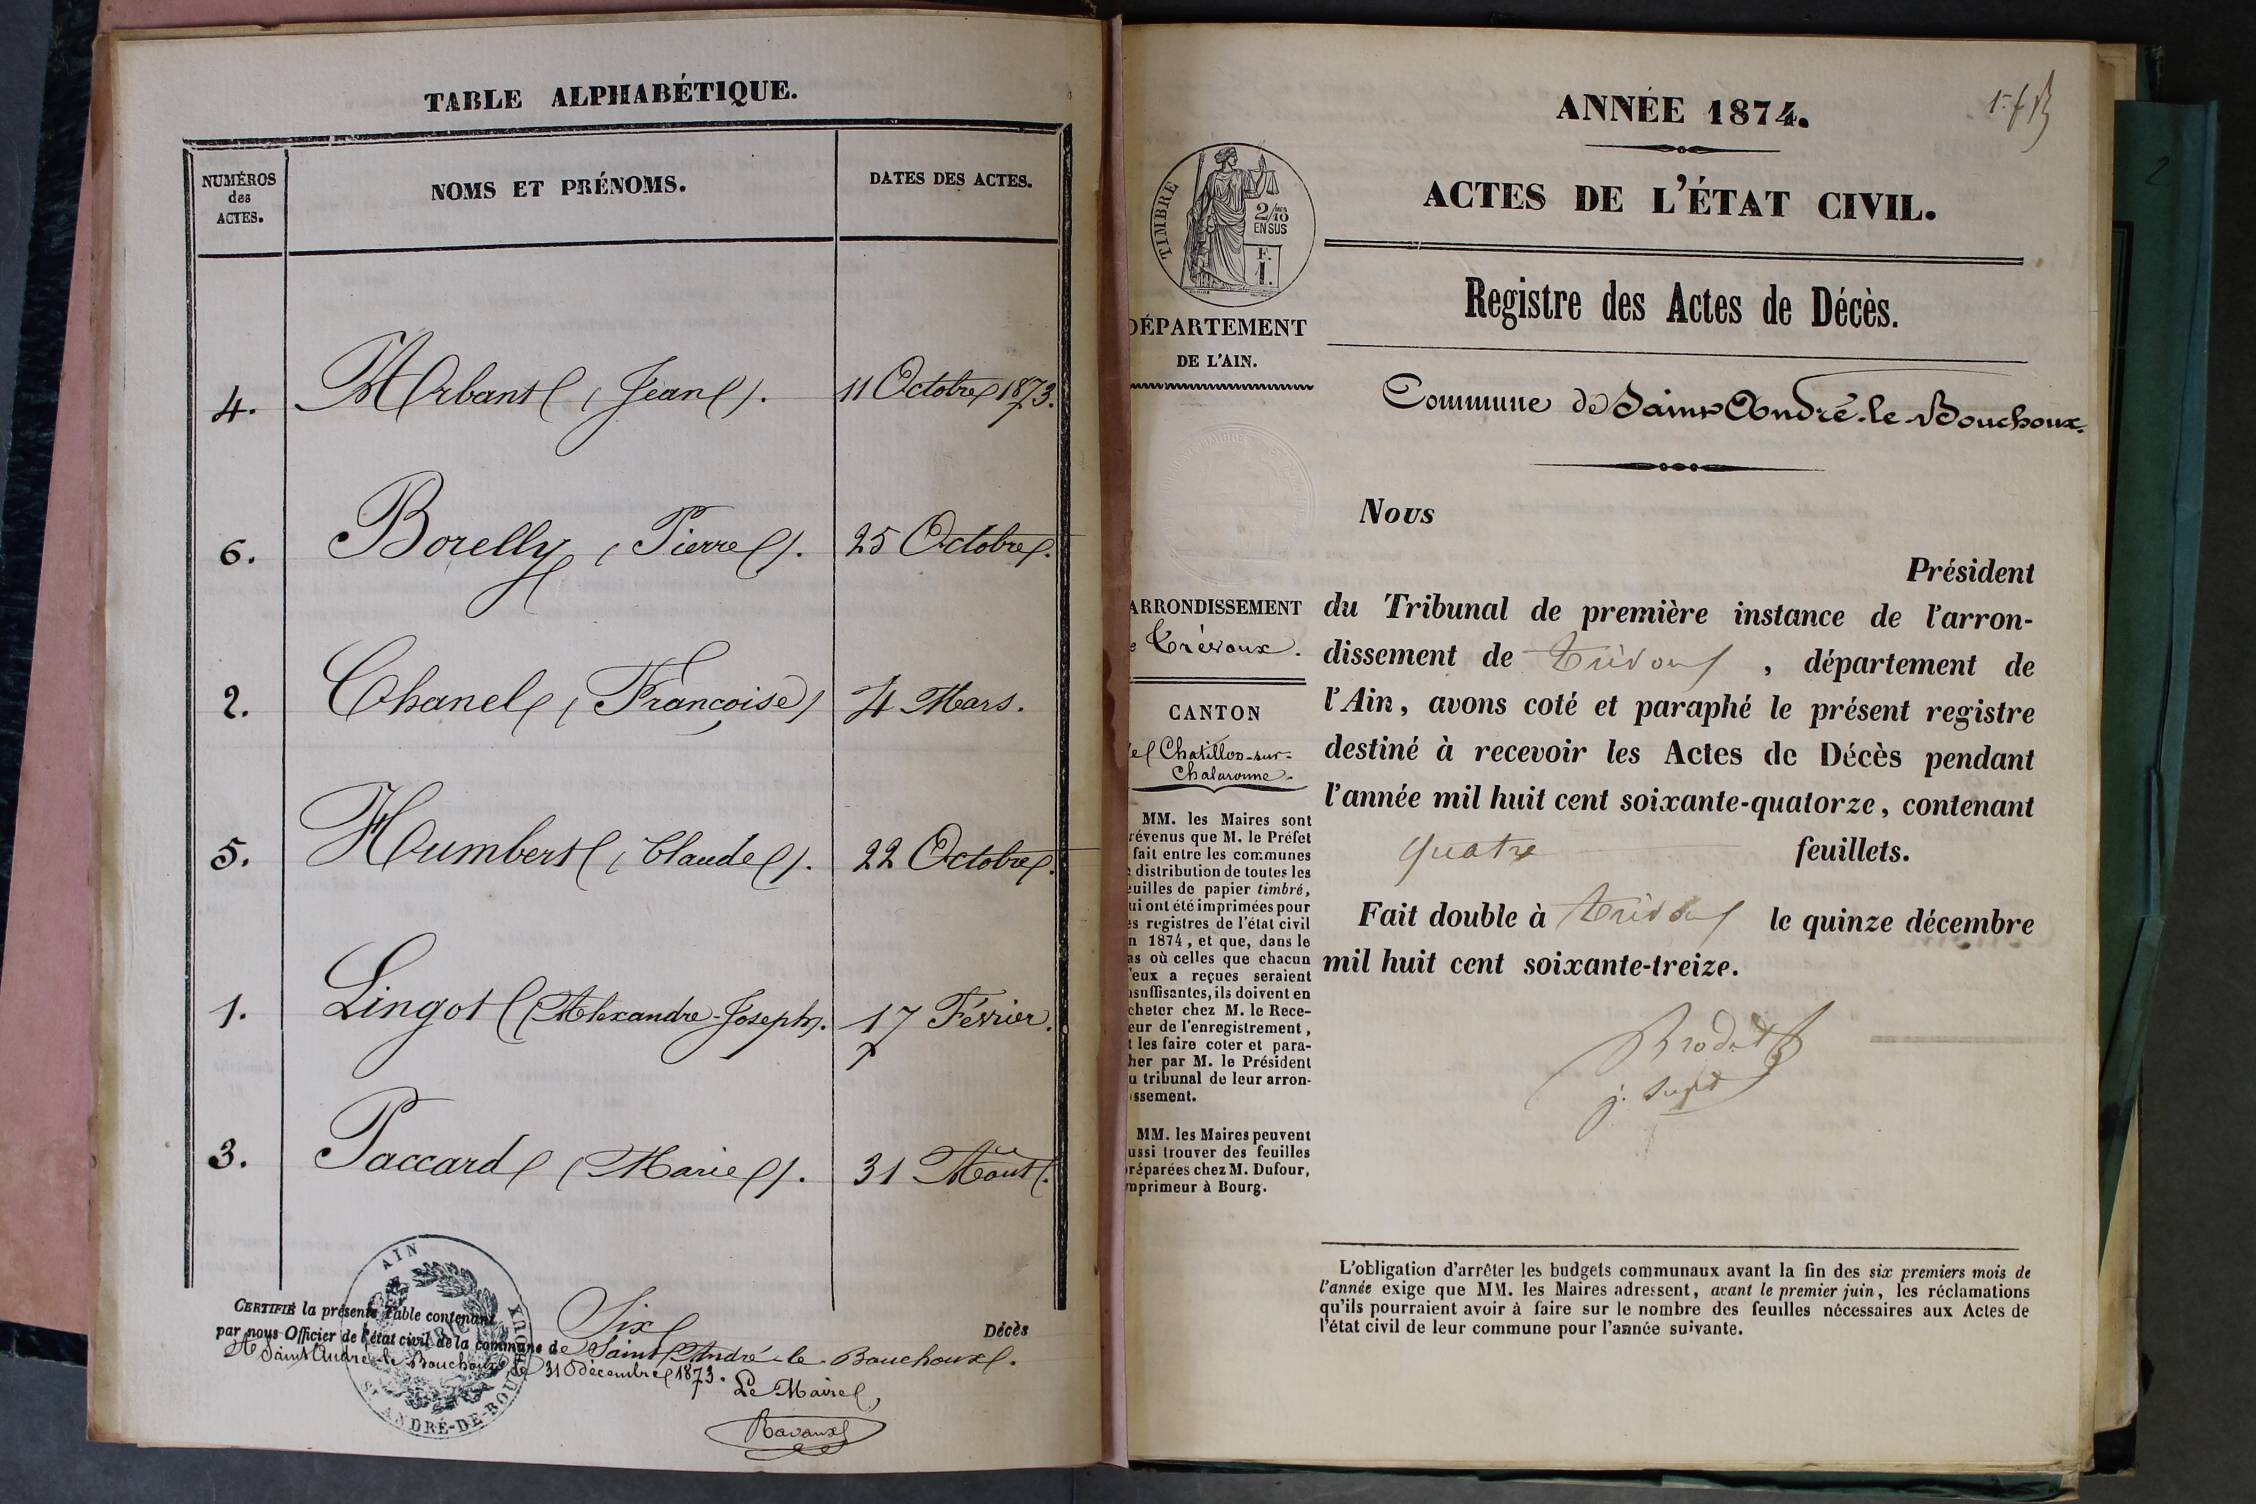 TABLE ALPHABÉTIQUE.
NUMÉROS
des
ACTES.
NOMS ET PRÉNOMS.
DATES DES ACTES.
4. Arbant (Jean). 11 Octobre 1873.
6. Borelly (Pierre). 25 Octobre.
2. Chanel (Françoise) 4 Mars.
5. Humbert (Claude). 22 Octobre.
1. Lingot (Alexandre-Joseph). 17 Février.
3. Paccard (Marie). 31 Août.
CERTIFIÉ la présente Table contenant Six Décès
par nous Officier de l'état civil de la commune de Saint André-le-Bouchoux.
A Saint André-le-Bouchoux le 31 Décembre 1873.
Le Maire,
Ravaux
AIN
MAIRIE
ST ANDRÉ-DE-BOUCHOUX
ANNÉE 1874.
ACTES DE L'ÉTAT CIVIL.
Registre des Actes de Décès.
Commune de Saint André-le-Bouchoux.
TIMBRE
2/10
EN SUS
F.
1.
DÉPARTEMENT
DE L'AIN.
ARRONDISSEMENT
Trévoux.
CANTON
Chatillon-sur-
Chalaronne.
MM. les Maires sont
révenus que M. le Préfet
fait entre les communes
distribution de toutes les
euilles de papier timbré,
ui ont été imprimées pour
es registres de l'état civil
n 1874, et que, dans le
as où celles que chacun
'eux a reçues seraient
nsuffisantes, ils doivent en
cheter chez M. le Rece-
eur de l'enregistrement,
t les faire coter et para-
her par M. le Président
u tribunal de leur arron-
ssement.
MM. les Maires peuvent
ussi trouver des feuilles
réparées chez M. Dufour,
mprimeur à Bourg.
Nous
Président
du Tribunal de première instance de l'arron-
dissement de Trévoux, département de
l'Ain, avons coté et paraphé le présent registre
destiné à recevoir les Actes de Décès pendant
l'année mil huit cent soixante-quatorze, contenant
quatre feuillets.
Fait double à Trévoux le quinze décembre
mil huit cent soixante-treize.
j. supt
L'obligation d'arrêter les budgets communaux avant la fin des six premiers mois de
l'année exige que MM. les Maires adressent, avant le premier juin, les réclamations
qu'ils pourraient avoir à faire sur le nombre des feuilles nécessaires aux Actes de
l'état civil de leur commune pour l'année suivante.
2